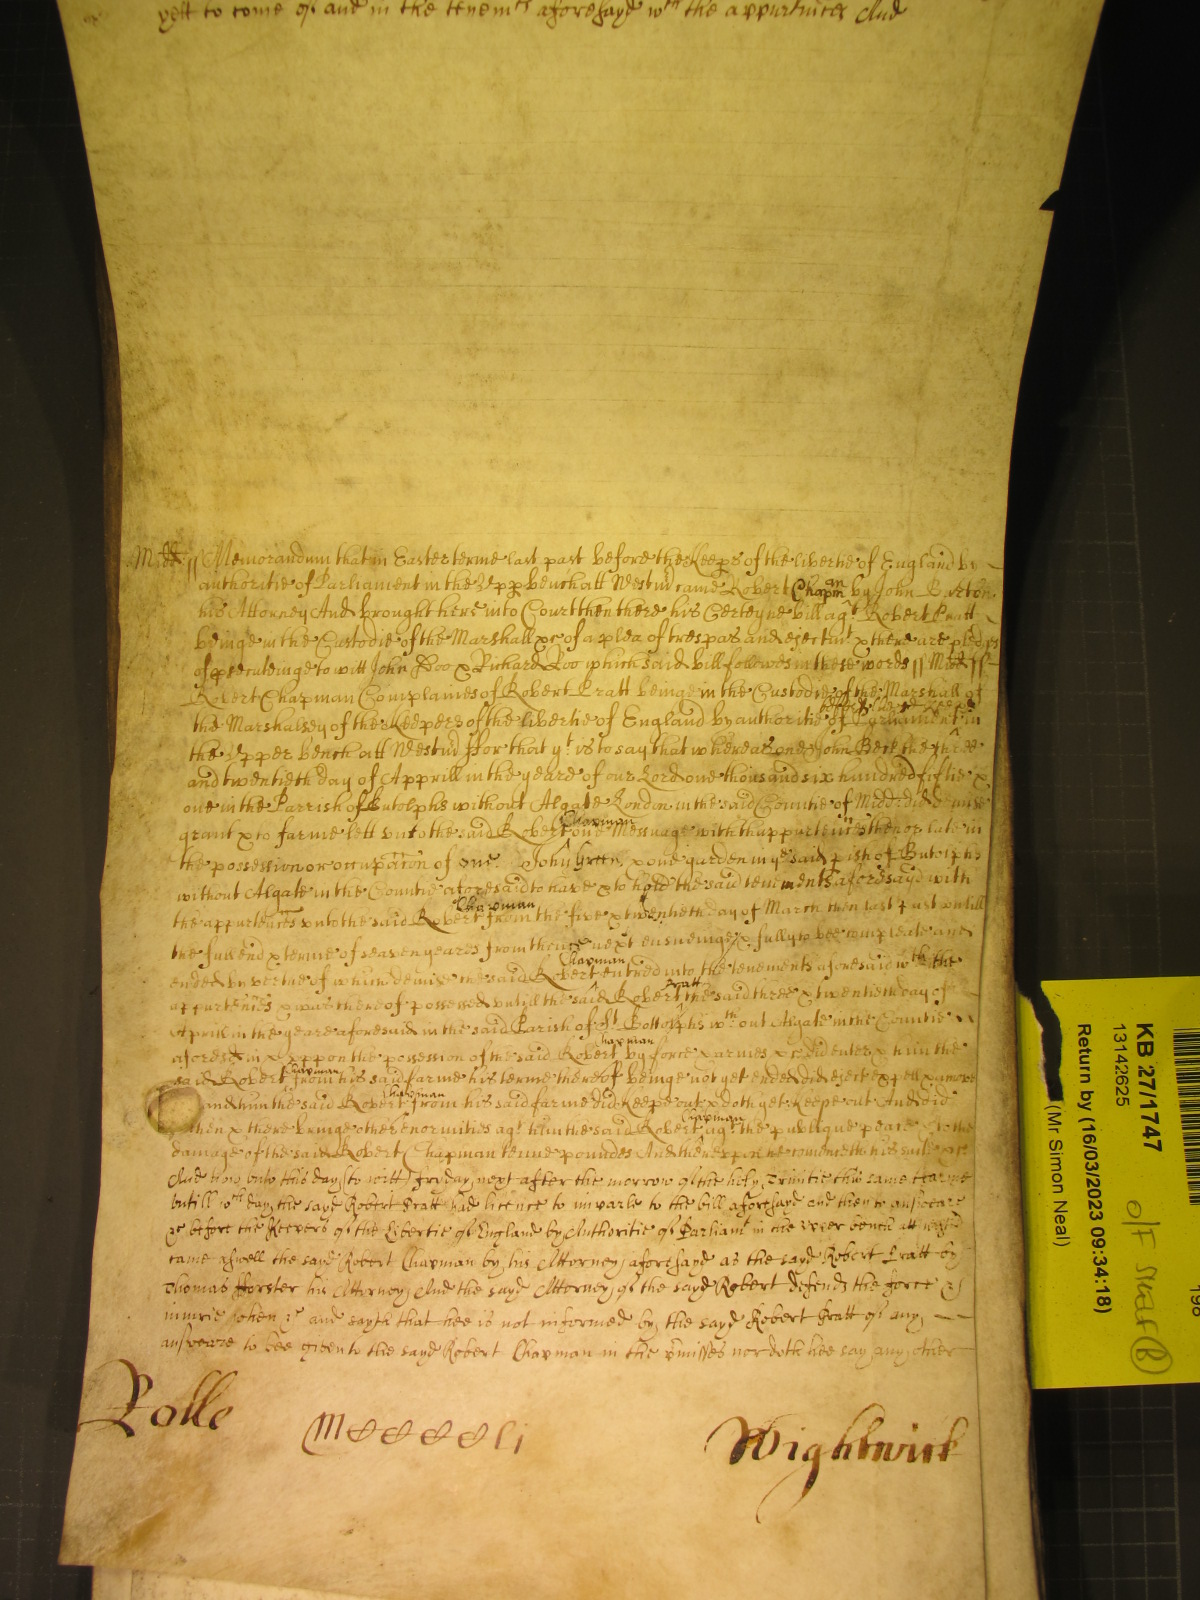 yett to come of and in the tenemts aforesayd wth the appurtnces And
Midd // Memorandum that in Easter terme last past before the Keeps of the libertie of England by
authoritie of Parliament in the Upp bench att Westm came Robert Chapman by John Burton
his Attorney And brought here into Court then there his Certeyne bill agt Robert Pratt
beinge in the Custodie of the Marshall &c of a plea of trespas and ejectmt & there are pledges
of psecuteinge to witt John Doo & Richard Roo which said bill followes in these words // Midd //
Robert Chapman Complaines of Robert Pratt beinge in the Custodie of the Marshall of
the Marshalsey of the Keepers of the libertie of England by authoritie of Parliament in
the Upper bench att Westm ffor that yt is to say that whereas one John Beck the three
and twentieth day of Aprill in the yeare of our Lord one thousand six hundred fiftie &
one in the Parrish of Butolphs without Algate London in the said Countie of Midd did demise
grant & to farme lett unto the said Robert Chapman one Messuage with thappurtennces then or late in
the possession or occupacon of one John Green & one garden in ye said pish of Butolphs
without Algate in the Countie aforesaid to have & to hold the said tenements aforesayd with
the appurtences unto the said Robert Chapman from the five & twentieth day of March then last past untill
the full end & terme of seaven yeares from thence next ensueinge & fully to bee compleate and
ended by vertue of which demise the said Robert Chapman entred into the tenements aforesaid wth the
appurtennces & was thereof possessed untill the said Robert Pratt the said three & twentieth day of
Aprill in the yeare aforesaid in the said Parish of St Bottolphs wthout Algate in the Countie
aforesd in & uppon the possession of the said Robert Chapman by force & armes &c did enter & him the
said Robert Chapman from his said farme his terme thereof beinge not yet ended did eject expell & amove
and him the said Robert Chapman from his said farme did keepe out & doth yet keepe out And did
then & there bringe other enormities agt him the said Robert Chapman agt the publique peace & to the
damage of the said Robert Chapman tenne poundes And thereupon he bringeth his suite &c
And now unto this day (to witt) fryday next after the morrow of the holy Trinitie this same tearme
untill wch day the sayd Robert Pratt had licence to imparle to the bill aforesayd and then to answeare
&c before the Keepers of the Libertie of England by Authoritie of Parliamt in the upper bench att Westm
came aswell the sayd Robert Chapman by his Attorney aforesayd as the sayd Robert Pratt by
Thomas fforster his Attorney And the sayd Attorney of the sayd Robert defends the force &
iniurie when &c and sayth that hee is not informed by the sayd Robert Pratt of any
answeare to bee given to the sayd Robert Chapman in the pmisses nor doth hee say any other
Rolle
Wightwick
KB 27/1747
13142625
Return by (16/03/2023 09:34:18)
(Mr Simon Neal)
198